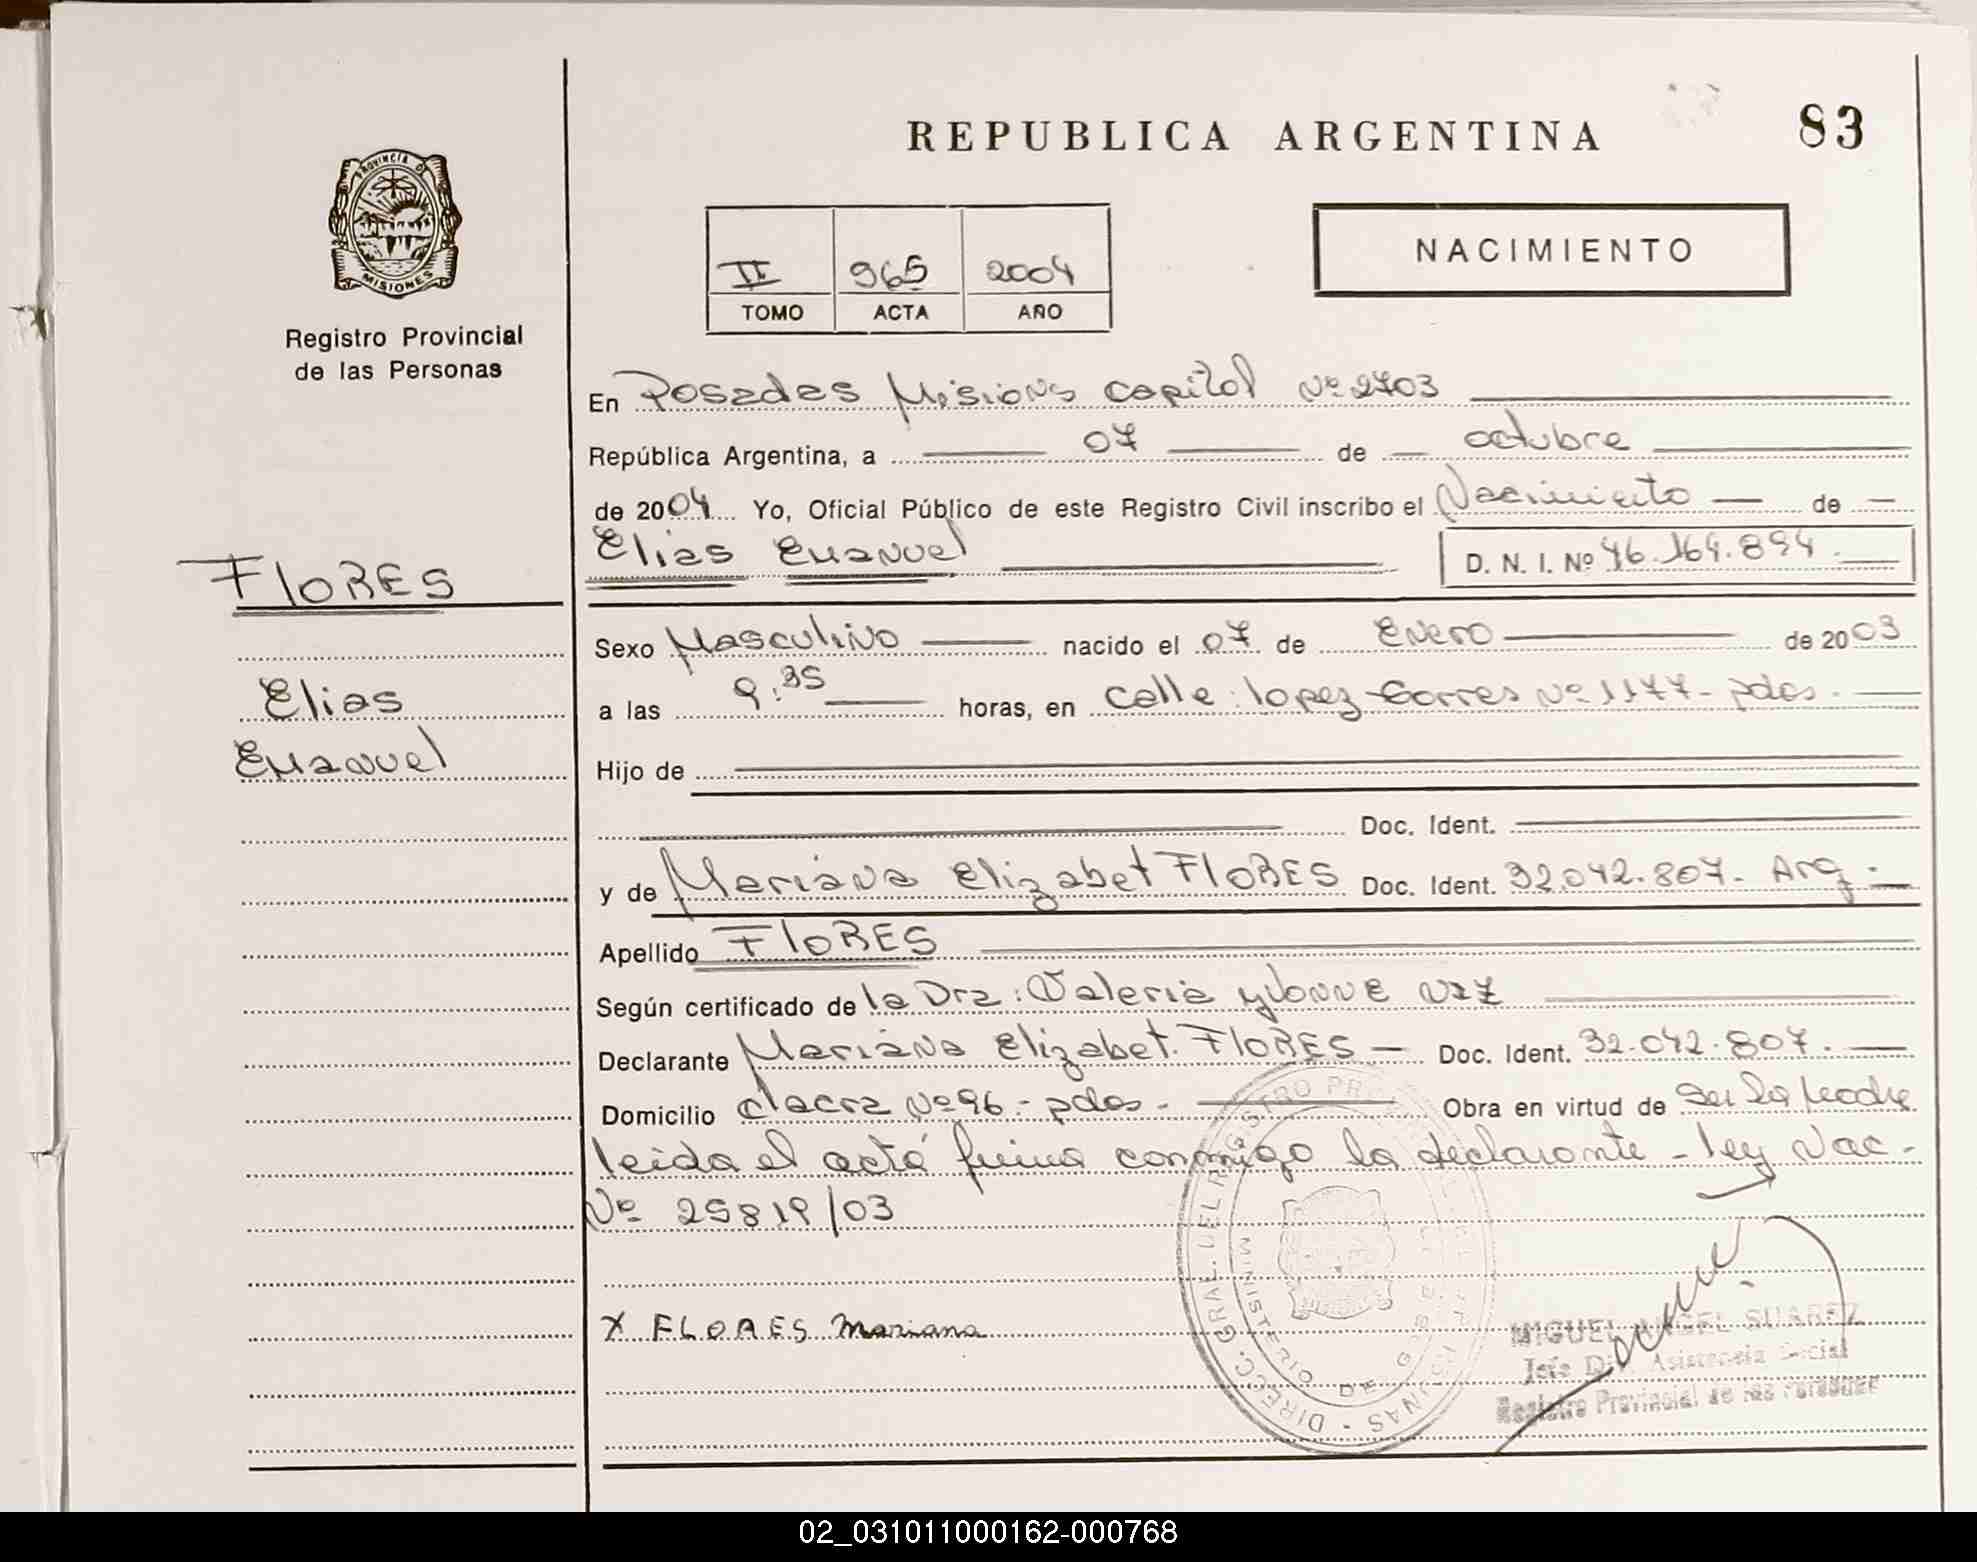 REPUBLICA ARGENTINA
83
PROVINCIA DE
MISIONES
Registro Provincial
de las Personas
II 965 2004
TOMO ACTA AÑO
NACIMIENTO
En Posadas Misions Capital Nº 2703
República Argentina, a 07 de octubre
de 2004 Yo, Oficial Público de este Registro Civil inscribo el Nacimiento de
FLORES
Elias Emanuel D. N. I. Nº 46.164.894.
Sexo Masculino nacido el 07 de Enero de 2003
Elias
a las 9:35 horas, en calle: lopez torres Nº 1177- pdas.
Emanuel
Hijo de
Doc. Ident.
y de Mariana Elizabet FLORES Doc. Ident. 32.042.807- Arg.
Apellido FLORES
Según certificado de la Dra: Valeria yvonne
Declarante Mariana Elizabet. FLORES Doc. Ident. 32.042.807.
Domicilio chacra Nº 96.- pdas- Obra en virtud de Ser la Madre
leida el acta firma conmigo la declarante - ley Nac-
Nº 25819/03
X FLORES Mariana
DIRECC. GRAL. DEL REGISTRO
MINISTERIO DE
MIGUEL ANGEL SUAREZ
Jefe Dº. Asistencia Social
Registro Provincial de las Personas
02_031011000162-000768